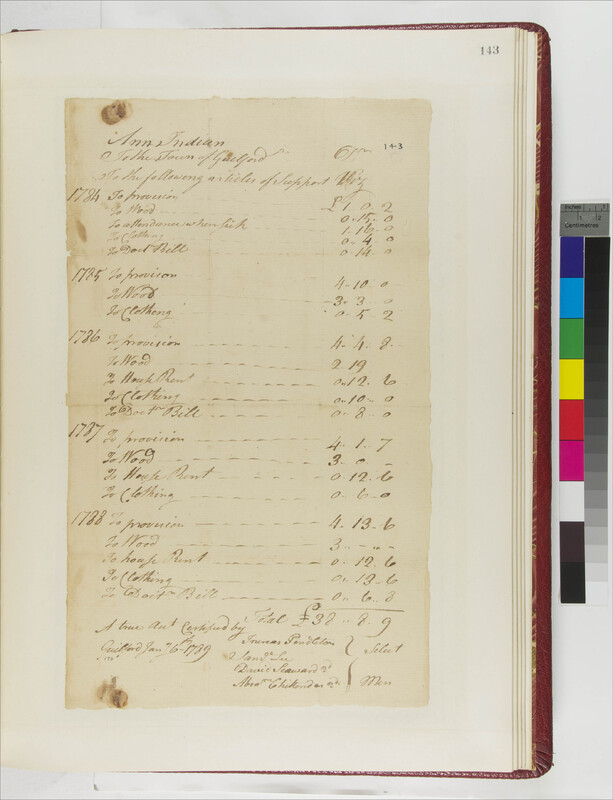 143
143
Ann Indian
To the Town of Guilford Dr
To the following articles of Support Viz
1784 To provision £1 0 2
To Wood 0.15.0
To attendance when sick 1.16.0
To Clothing 0.4.0
To Doctr Bill 0.14.0
1785 To provison 4.10.0
To Wood 3.3.0
To Clothong 0.5.2
1786 To provision 4.4.8
To Wood 2.19
To House Rent 0.12.6
To Clothing 0.10.0
To Doctr Bill 0.8.0
1787 To provision 4.1.7
To Wood 3.0.
To House Rent 0.12.6
To Clothing 0.6.0
1788 To provision 4.13.6
To Wood 3. - -
To house Rent 0.12.6
To Clothing 0.13.6
To Doctr Bill 0.6.8
Total £38..8.9
A true Act Certified by
Guilford Jany 6th 1789
Pendleton
Lee
David Seaward
Abrm Chittenden
Select
Men
Inches 1 2
Centimetres